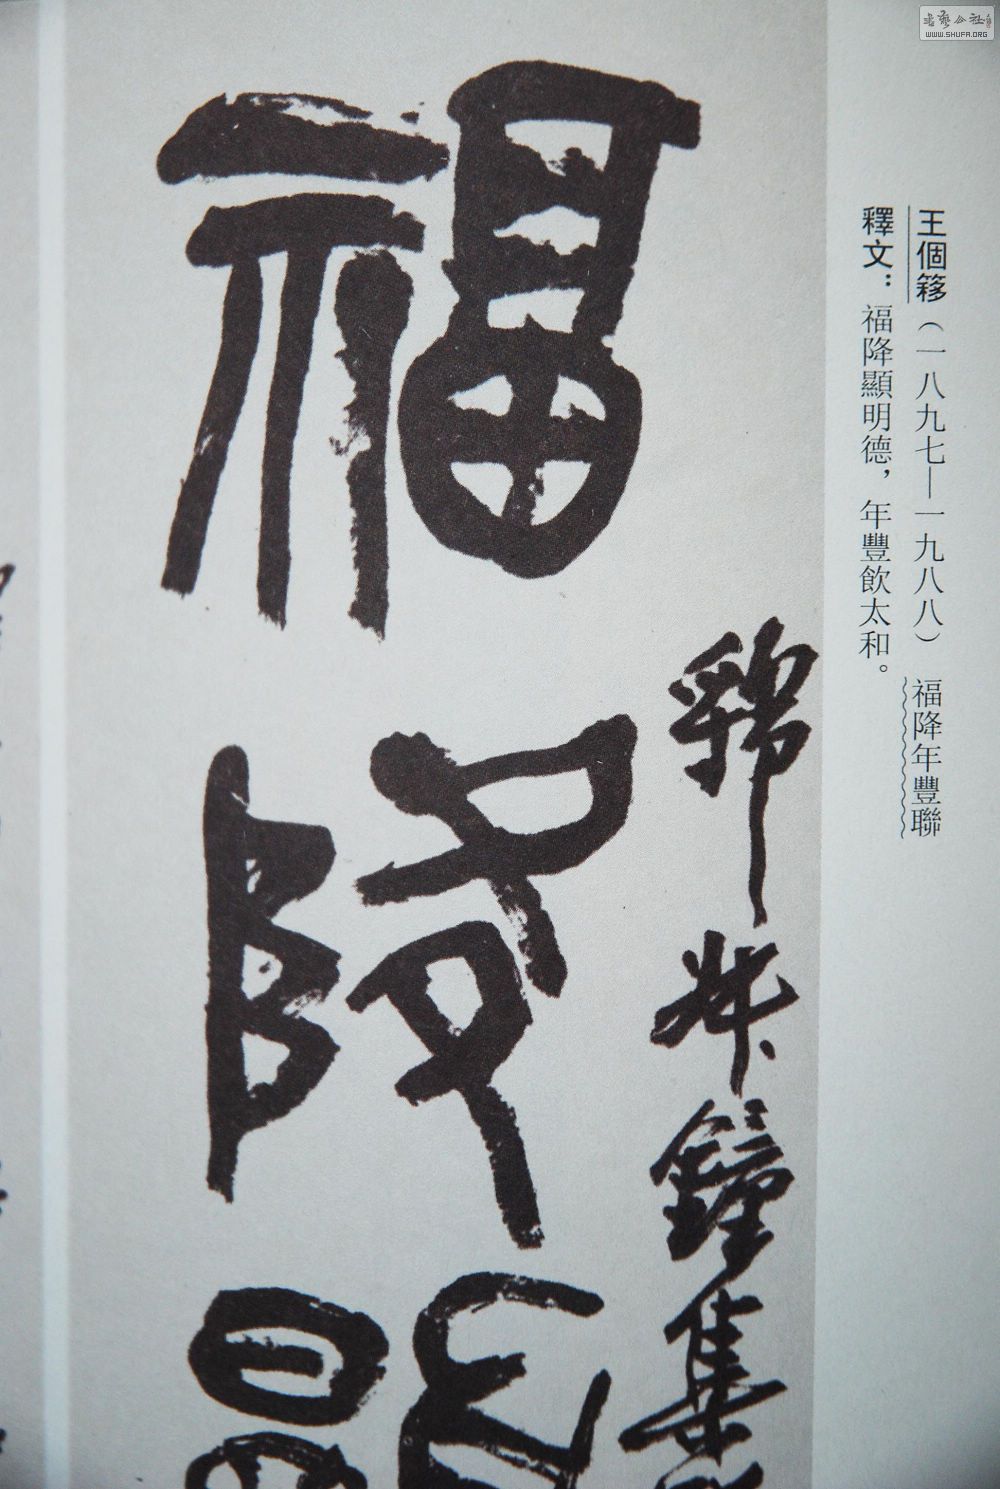 王個簃（一八九七—一九八八） 福降年豐聯
釋文：福降顯明德，年豐飲太和。
鐘集
福降
WWW.SHUFA.ORG